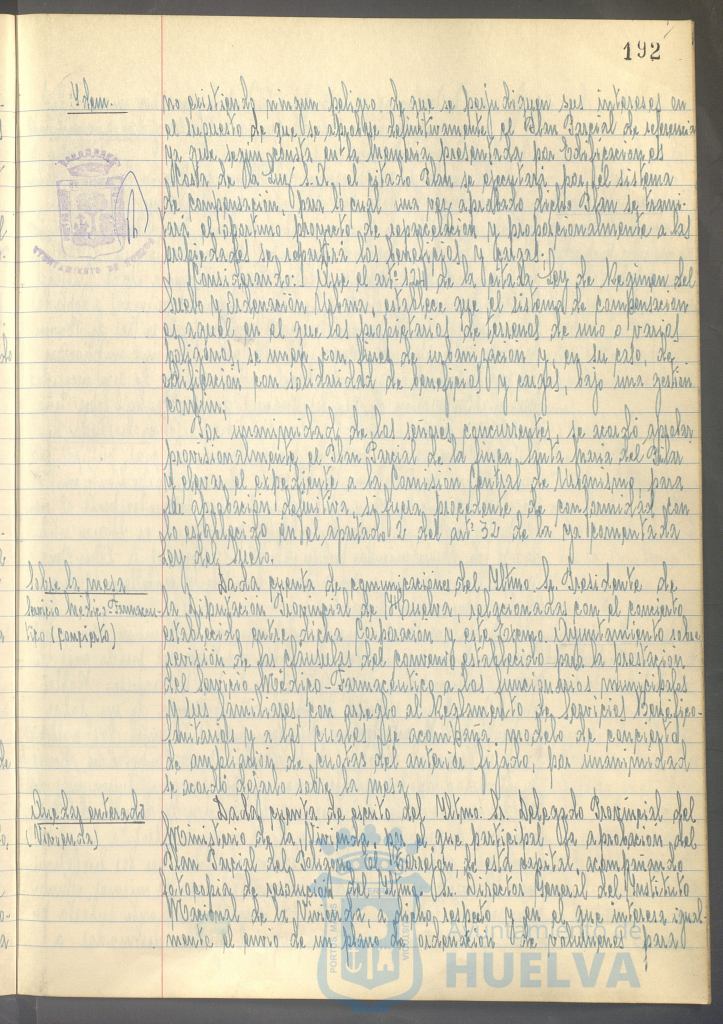 192
Idem.
no existiendo ningun peligro de que se perjudiquen sus intereses en
el supuesto de que se apruebe definitivamente el Plan Parcial de referencia
ya que segun consta en la Memoria presentada por Edificaciones
Costa de la Luz S.A. el citado Plan se ejecutará por el sistema
de compensación, para lo cual una vez aprobado dicho Plan se trami-
tará el oportuno proyecto de reparcelación y proporcionalmente a las
propiedades se repartirá los beneficios y cargas.
Considerando: Que el artº 124 de la citada Ley de Regimen del
Suelo y Ordenación Urbana, establece que el sistema de compensación
es aquel en el que los propietarios de terrenos de uno o varios
poligonos, se unen con fines de urbanización y, en su caso, de
edificación con solidaridad de beneficios y cargas, bajo una gestión
comun;
Por unanimidad de los señores concurrentes, se acordó aprobar
provisionalmente el Plan Parcial de la finca Santa Maria del Pilar
y elevar el expediente a la Comisión Central de Urbanismo, para
su aprobación definitiva, si fuera procedente de conformidad con
lo establecido en el apartado 2 del artº 32 de la ya comentada
Ley del Suelo.
Sobre la mesa
Servicio Médico Farmaceu-
tico (concierto)
Dada cuenta de comunicaciones del Iltmo. Sr. Presidente de
la Diputación Provincial de Huelva, relacionadas con el concierto
establecido entre dicha Corporación y este Excmo. Ayuntamiento sobre
revisión de las cláusulas del convenio establecido para la prestación
del Servicio Médico-Farmacéutico a los funcionarios municipales
y sus familiares, con arreglo al Reglamento de Servicios Benéfico-
Sanitarios y a las cuales se acompaña modelo de concierto
de ampliación de cuotas del anterior fijado, por unanimidad
se acordó dejarlo sobre la mesa.
Quedar enterado
(Vivienda)
Dada cuenta de escrito del Iltmo. Sr. Delegado Provincial del
Ministerio de la Vivienda, en el que participa la aprobación del
Plan Parcial del Poligono El Torrejon, de esta capital, acompañando
fotocopia de resolución del Iltmo. Sr. Director General del Instituto
Nacional de la Vivienda a dicho respecto y en el que interesa igual-
mente el envio de un plano de ordenación de volumenes para
AYUNTAMIENTO DE HUELVA
PORTUS MARIS
Ayuntamiento de
HUELVA